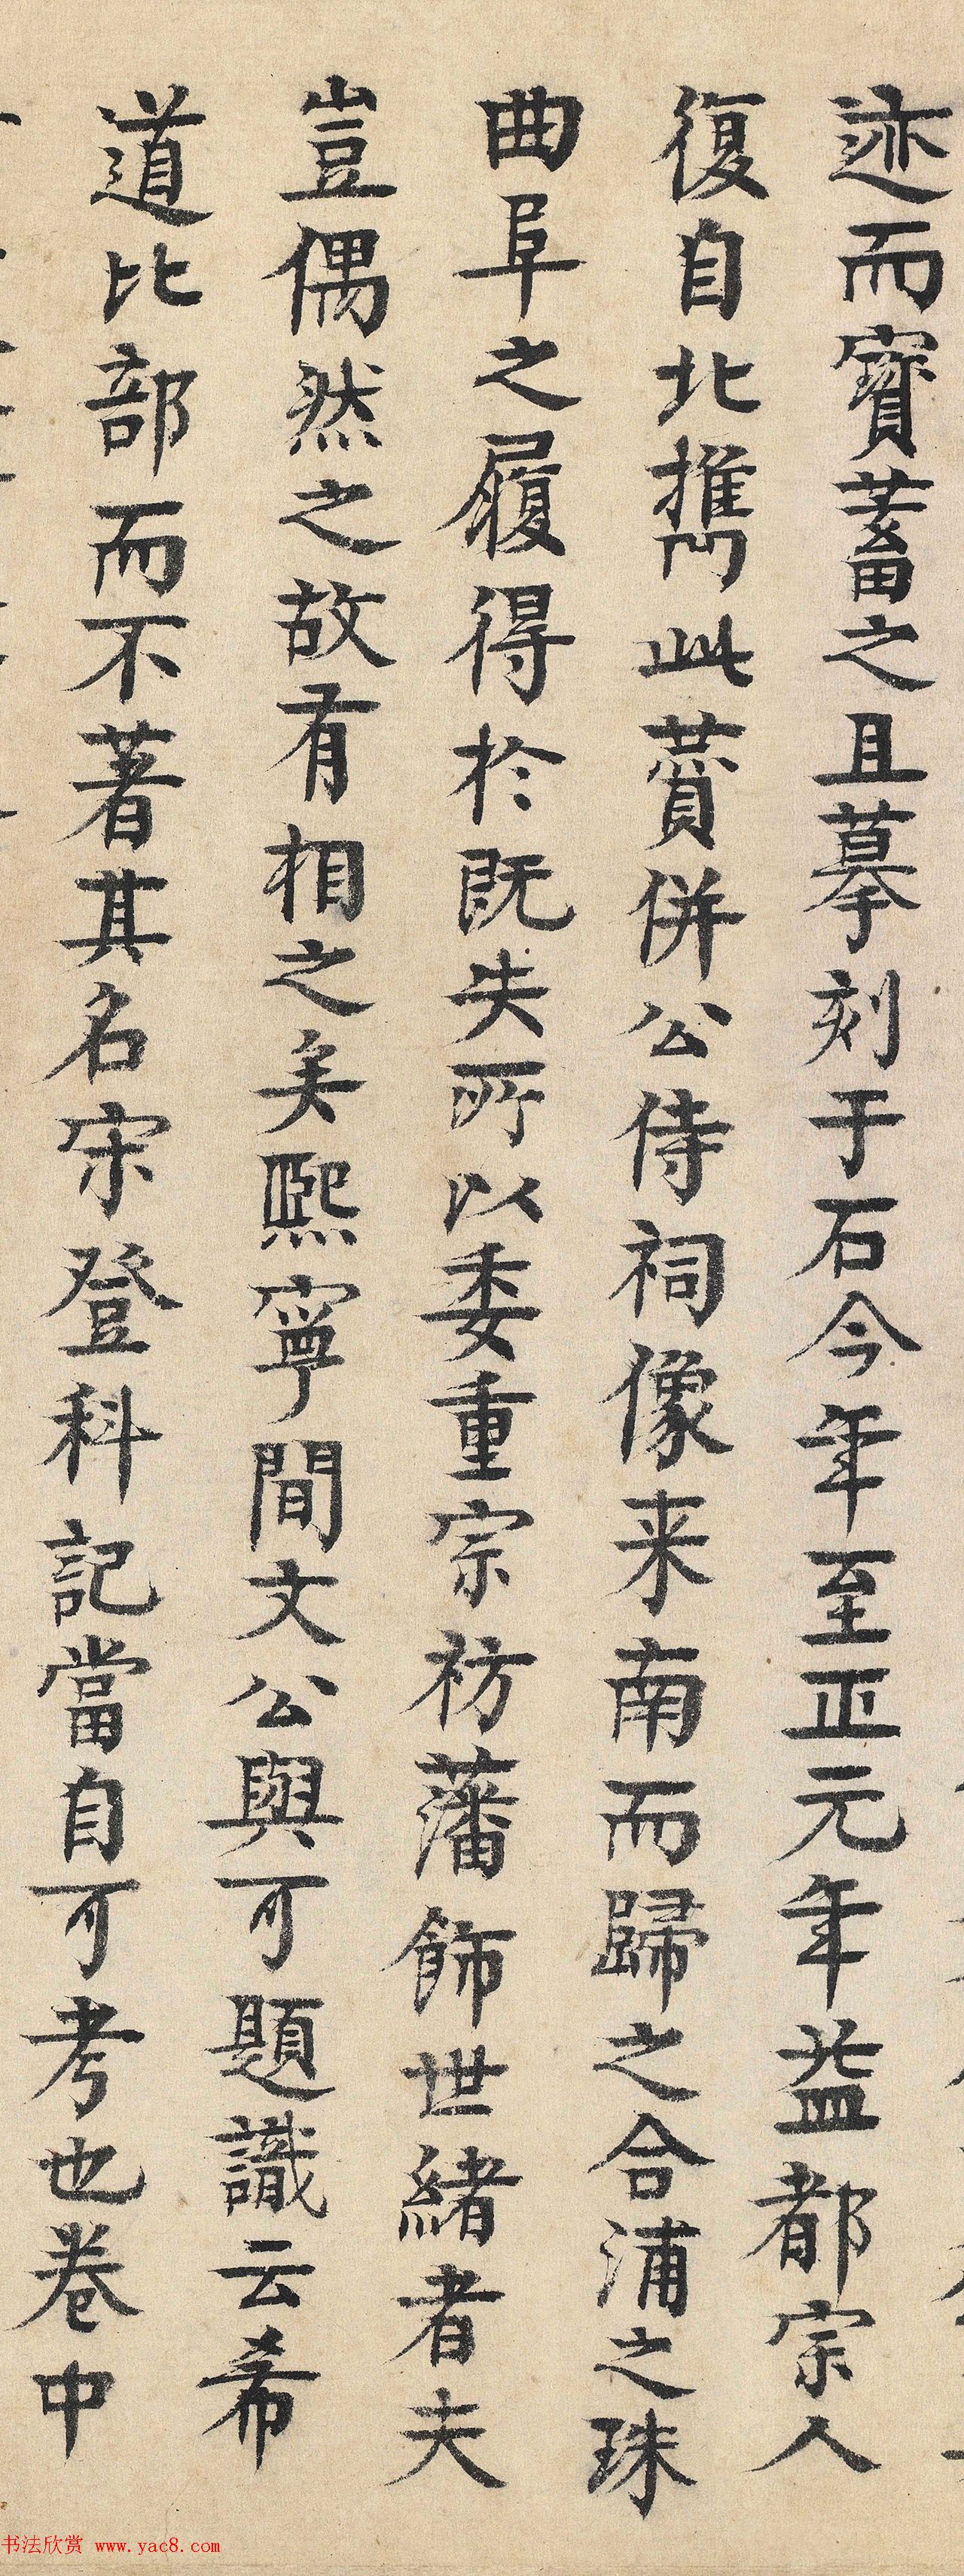 迹而寳蓄之且摹刻于石今年至正元年益都宗人
復自北擕此賛併公侍祠像来南而歸之合浦之珠
曲阜之履得於既失所以委重宗祊藩飾世緒者夫
豈偶然之故有相之矣熙寧間文公與可題識云希
道比部而不著其名宋登科記當自可考也卷中
书法欣赏 www.yac8.com